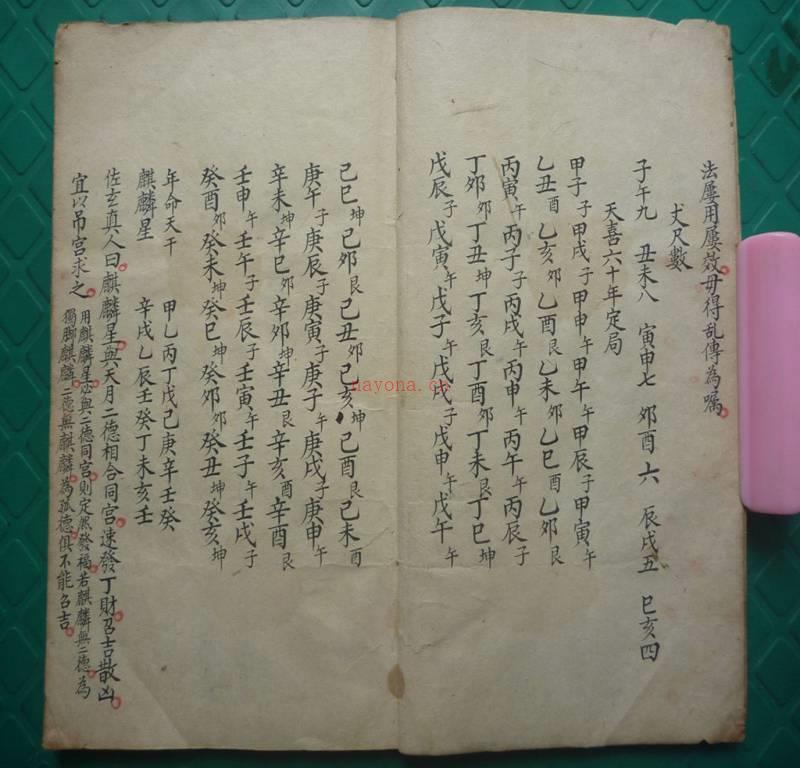 法屡用屡效毋得乱傳為嘱
丈尺數
子午九 丑未八 寅申七 夘酉六 辰戌五 巳亥四
天喜六十年定局
甲子子甲戌子甲申午甲午午甲辰子甲寅午
乙丑酉乙亥夘乙酉艮乙未夘乙巳酉乙夘艮
丙寅午丙子子丙戌午丙申午丙午午丙辰子
丁夘夘丁丑坤丁亥艮丁酉夘丁未艮丁巳坤
戊辰子戊寅午戊子午戊戌子戊申午戊午午
己巳坤己夘艮己丑夘己亥坤己酉艮己未酉
庚午子庚辰子庚寅子庚子午庚戌子庚申午
辛未坤辛巳夘辛夘坤辛丑艮辛亥酉辛酉艮
壬申午壬午子壬辰子壬寅午壬子午壬戌子
癸酉夘癸未坤癸巳坤癸夘夘癸丑坤癸亥坤
年命天干 甲乙丙丁戊己庚辛壬癸
麒麟星 辛戌乙辰壬癸丁未亥壬
佐玄真人曰麒麟星與天月二德相合同宫速發丁財召吉散凶
宜以吊宫求之 用麒麟星必與二德同宫則定然發福若麒麟無二德為
獨脚麒麟二德無麒麟為孤德俱不能召吉
nayona.cn